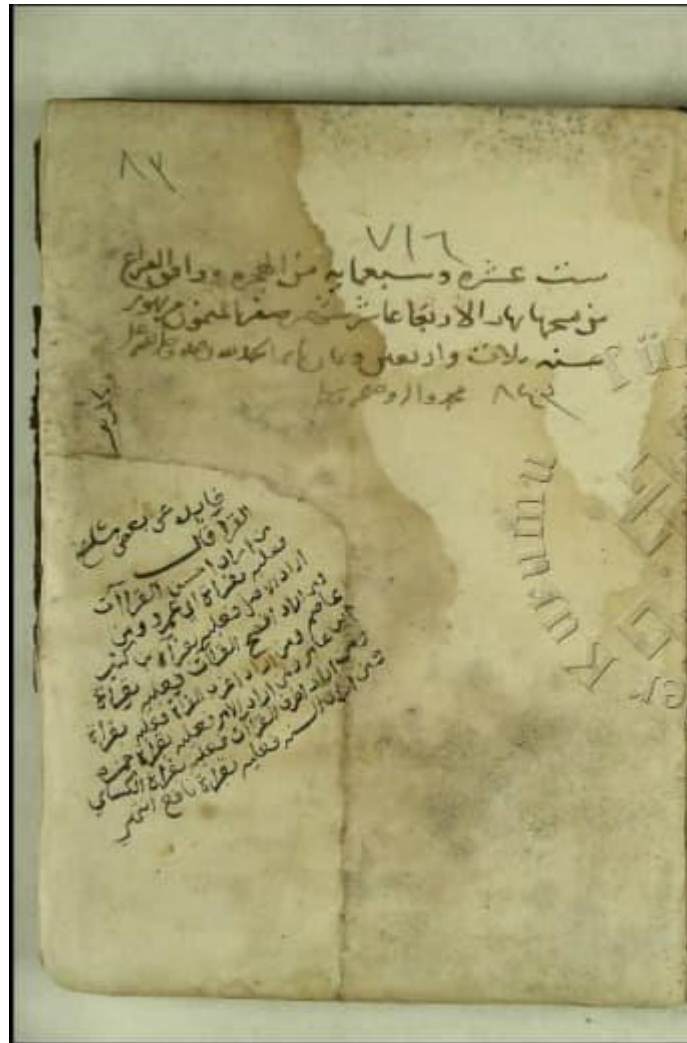 ٨٣
٧١٦
ست عشره وسبعمايه من الهجره ووافق الفراغ
من نهار الاربعا عاشر شهر صفر الميمون شهور
سنه ثلاث واربعين وثمان مايه الحمد لله وحده
٨٤٣ محمد واله وصحبه
فايده عن بعض مشايخ
القرا قال
من اراد احسن القراآت
فعليه بقراة ابي عمرو ومن
اراد الاصل فعليه بقراة ابن كثير
ومن اراد افصح القراات فعليه بقراة
عاصم ومن اراد اغرب القراة فعليه بقراة
ابن عامر ومن اراد الاثر فعليه بقراة حمزه
ومن اراد اظرف القراات فعليه بقراة الكساي
ومن اراد السنه فعليه بقراة نافع انتهى
er Kurumu